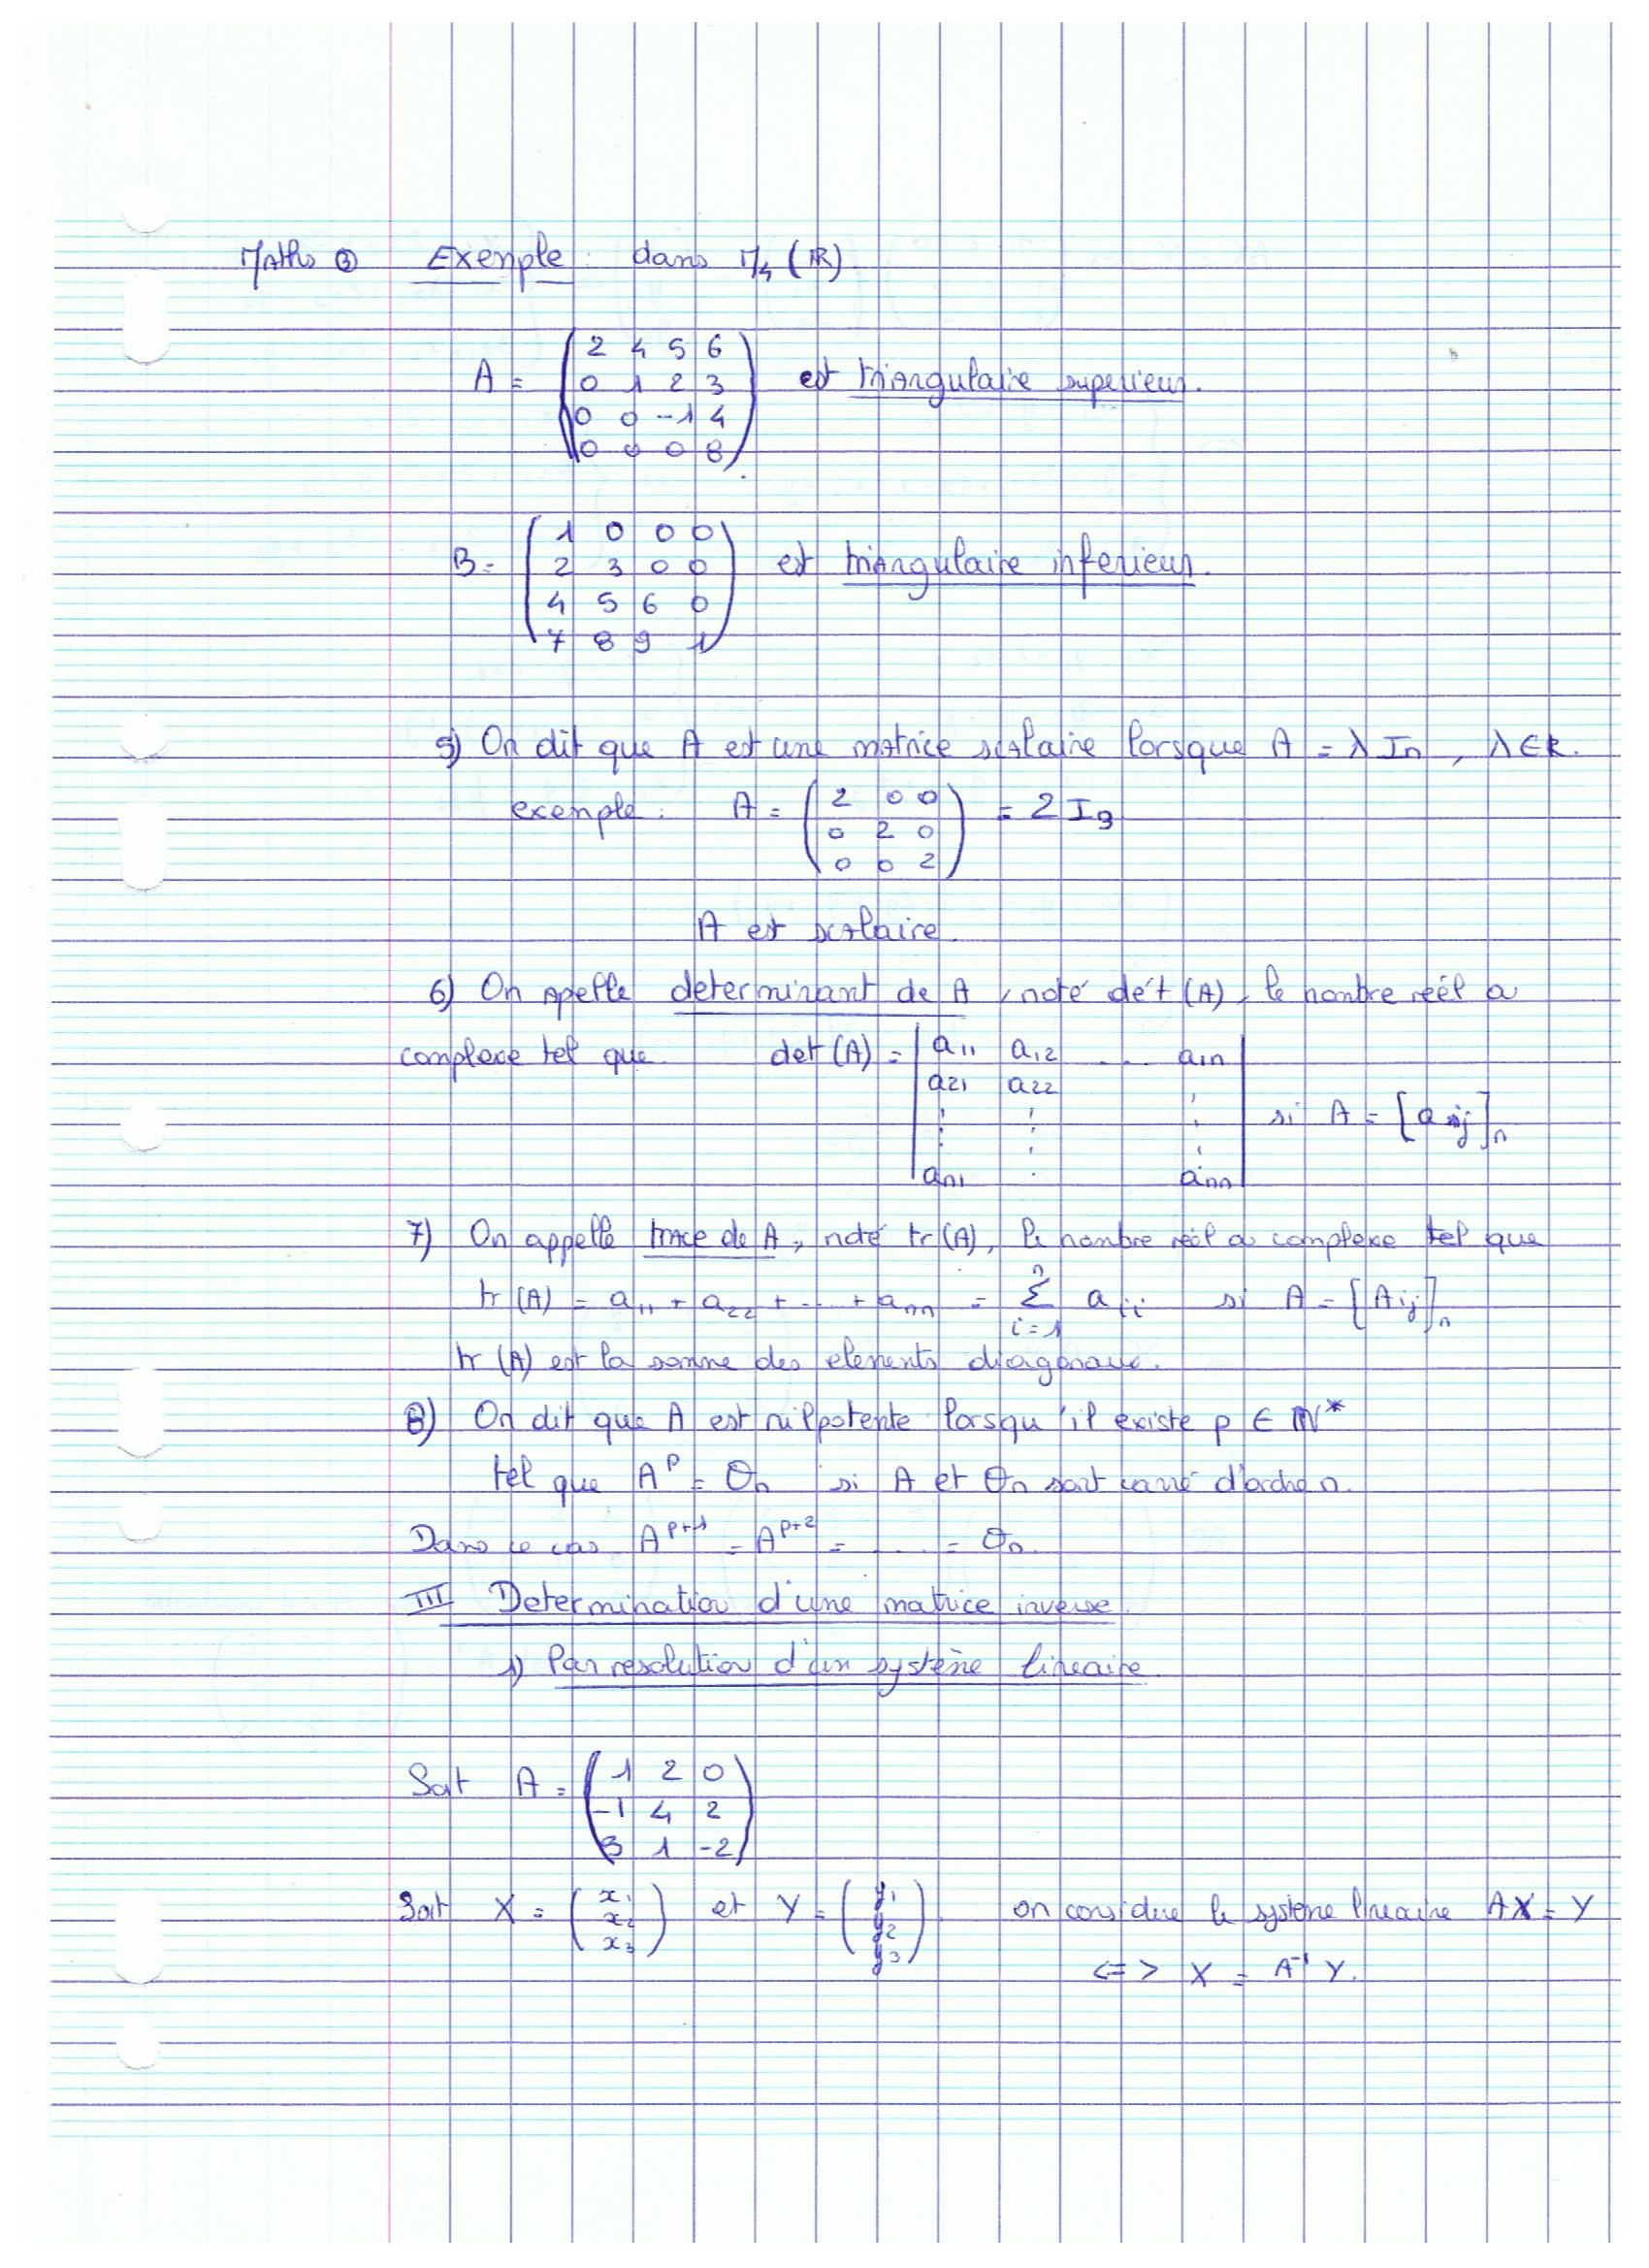 Maths ③ Exemple : dans M₄ (ℝ)
A = ( 2 4 5 6
0 1 2 3
0 0 -1 4
0 0 0 8 ) est triangulaire superieur.
B = ( 1 0 0 0
2 3 0 0
4 5 6 0
7 8 9 1 ) est triangulaire inferieur.
5) On dit que A est une matrice scalaire lorsque A = λ In , λ ∈ R.
exemple : A = ( 2 0 0
0 2 0
0 0 2 ) = 2 I₃
A est scalaire.
6) On apelle determinant de A , noté dét (A), le nombre réel ou
complexe tel que det (A) = | a₁₁ a₁₂ ... a₁n
a₂₁ a₂₂
⋮ ⋮ ⋮
an₁ . ann | si A = [aij]n
7) On appelle trace de A, noté tr (A), le nombre réel ou complexe tel que
tr (A) = a₁₁ + a₂₂ + ... + ann = Σ(i=1 → n) aii si A = [Aij]n
tr (A) est la somme des elements diagonaux.
8) On dit que A est nilpotente lorsqu'il existe p ∈ ℕ*
tel que A^p = On si A et On sont carré d'ordre n.
Dans ce cas A^(p+1) = A^(p+2) = .... = On.
III Determination d'une matrice inverse.
1) Par resolution d'un système lineaire.
Soit A = ( 1 2 0
-1 4 2
3 1 -2 )
Soit X = ( x₁
x₂
x₃ ) et Y = ( y₁
y₂
y₃ ) on considere le système lineaire AX = Y
<=> X = A⁻¹ Y.